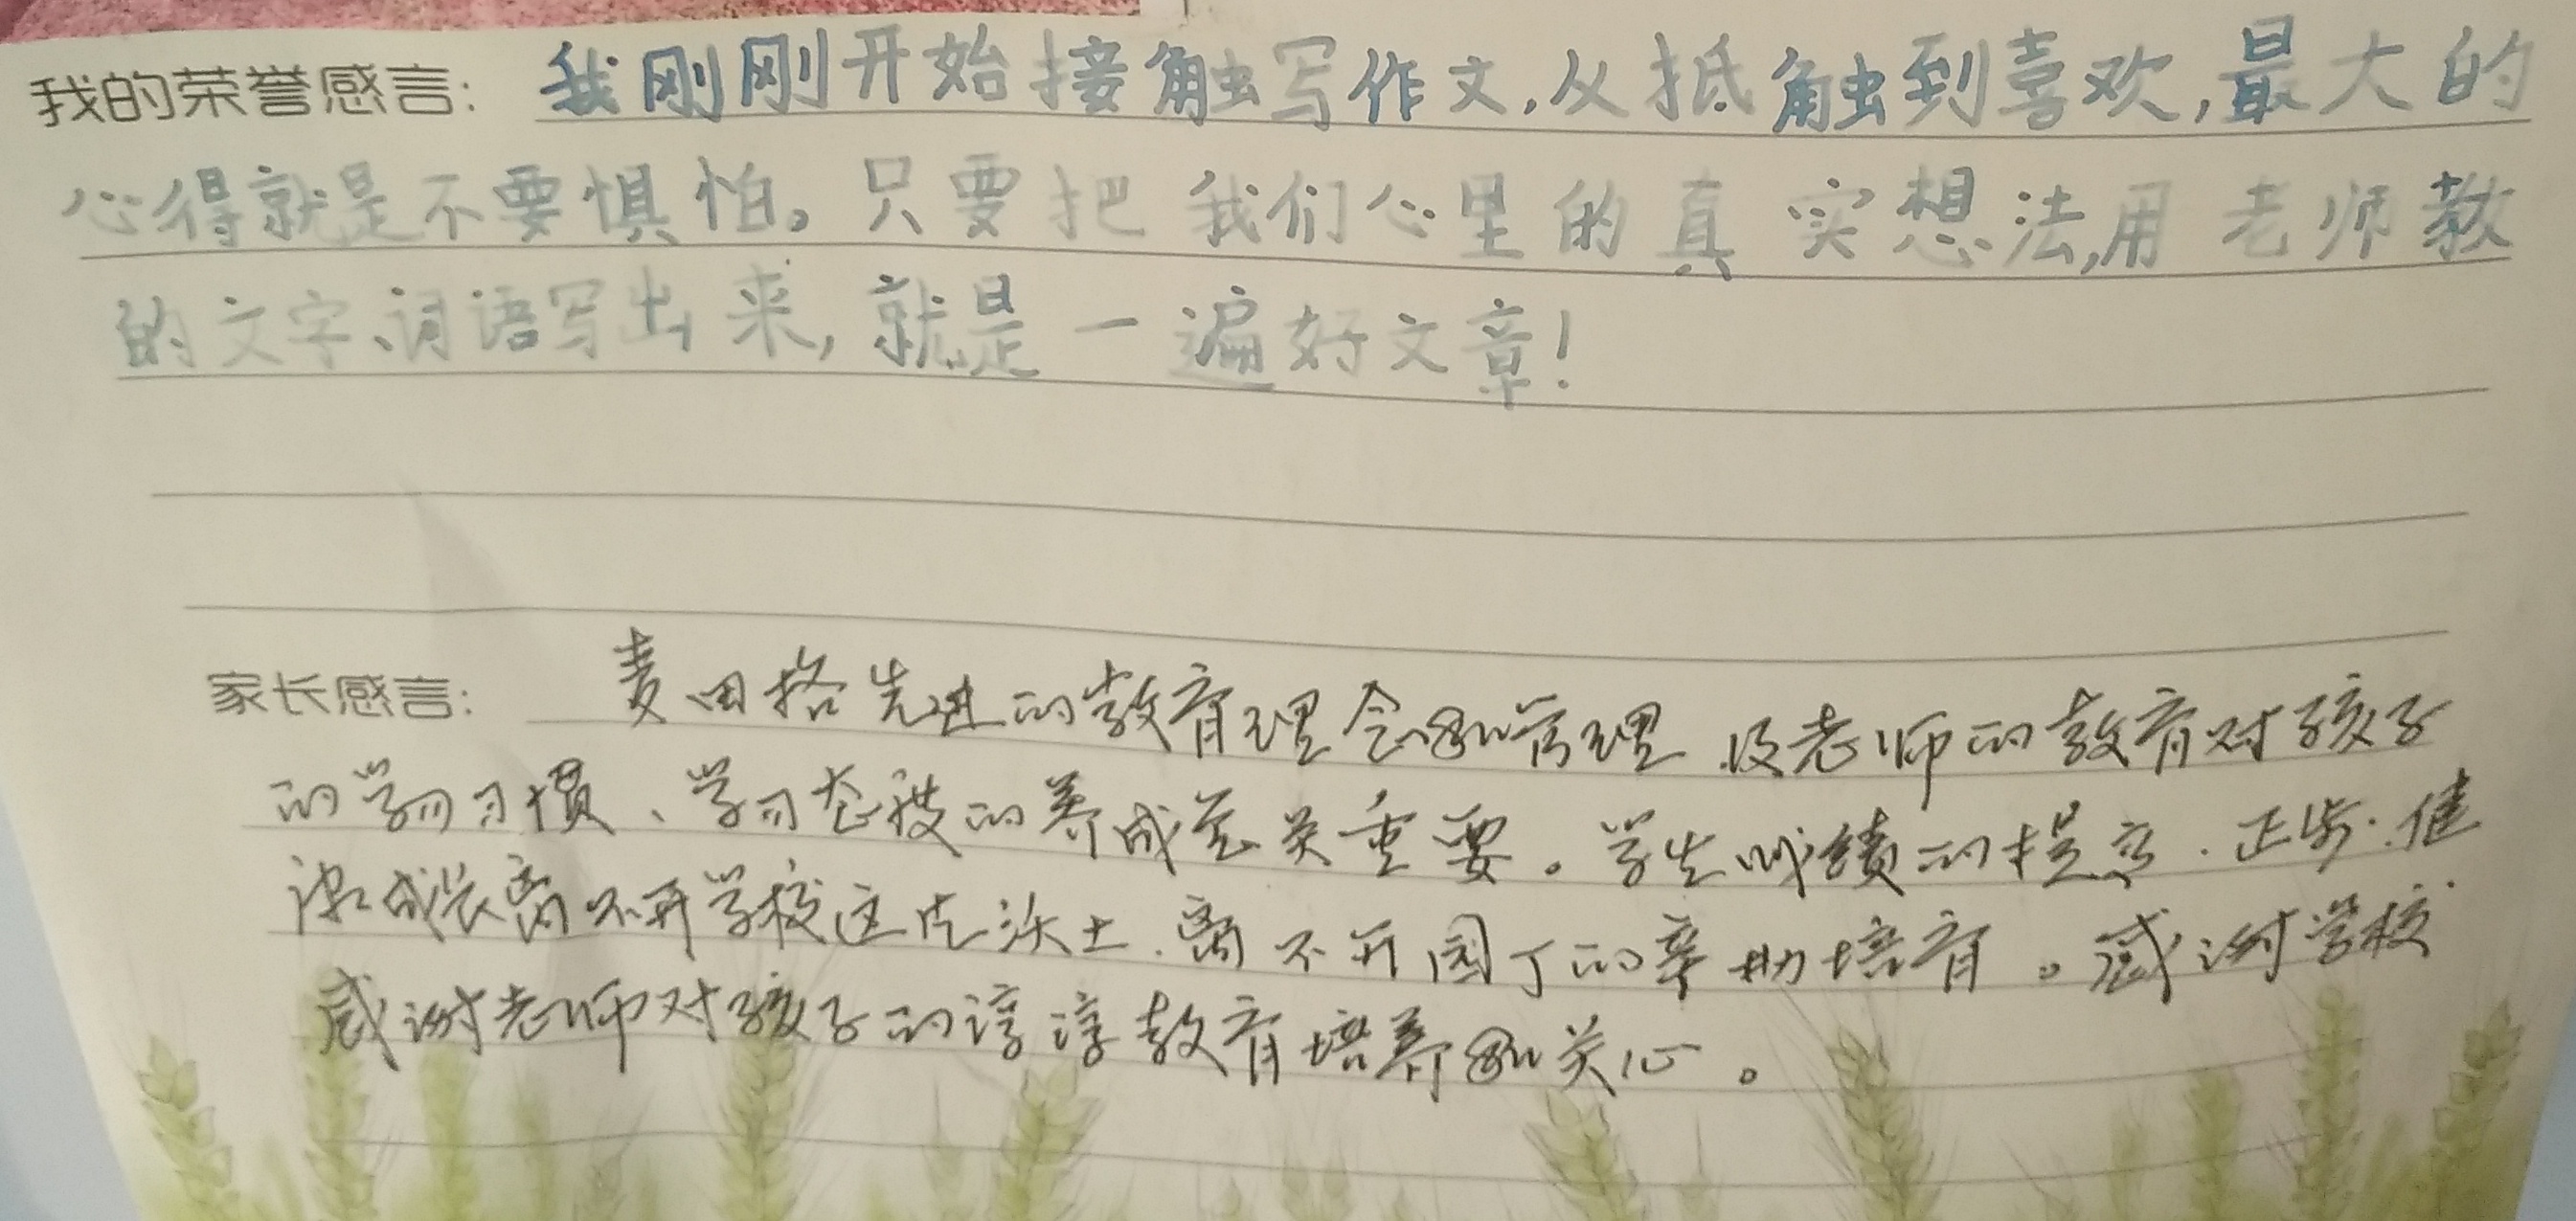 我的荣誉感言：我刚刚开始接触写作文，从抵触到喜欢，最大的
心得就是不要惧怕。只要把我们心里的真实想法，用老师教
的文字、词语写出来，就是一遍好文章！
家长感言：麦田格先进的教育理念和管理及老师的教育对孩子
的学习习惯、学习态度的养成至关重要。学生成绩的提高.正步.健
康成长离不开学校这片沃土.离不开园丁的辛勤培育。感谢学校
感谢老师对孩子的谆谆教育培养和关心。